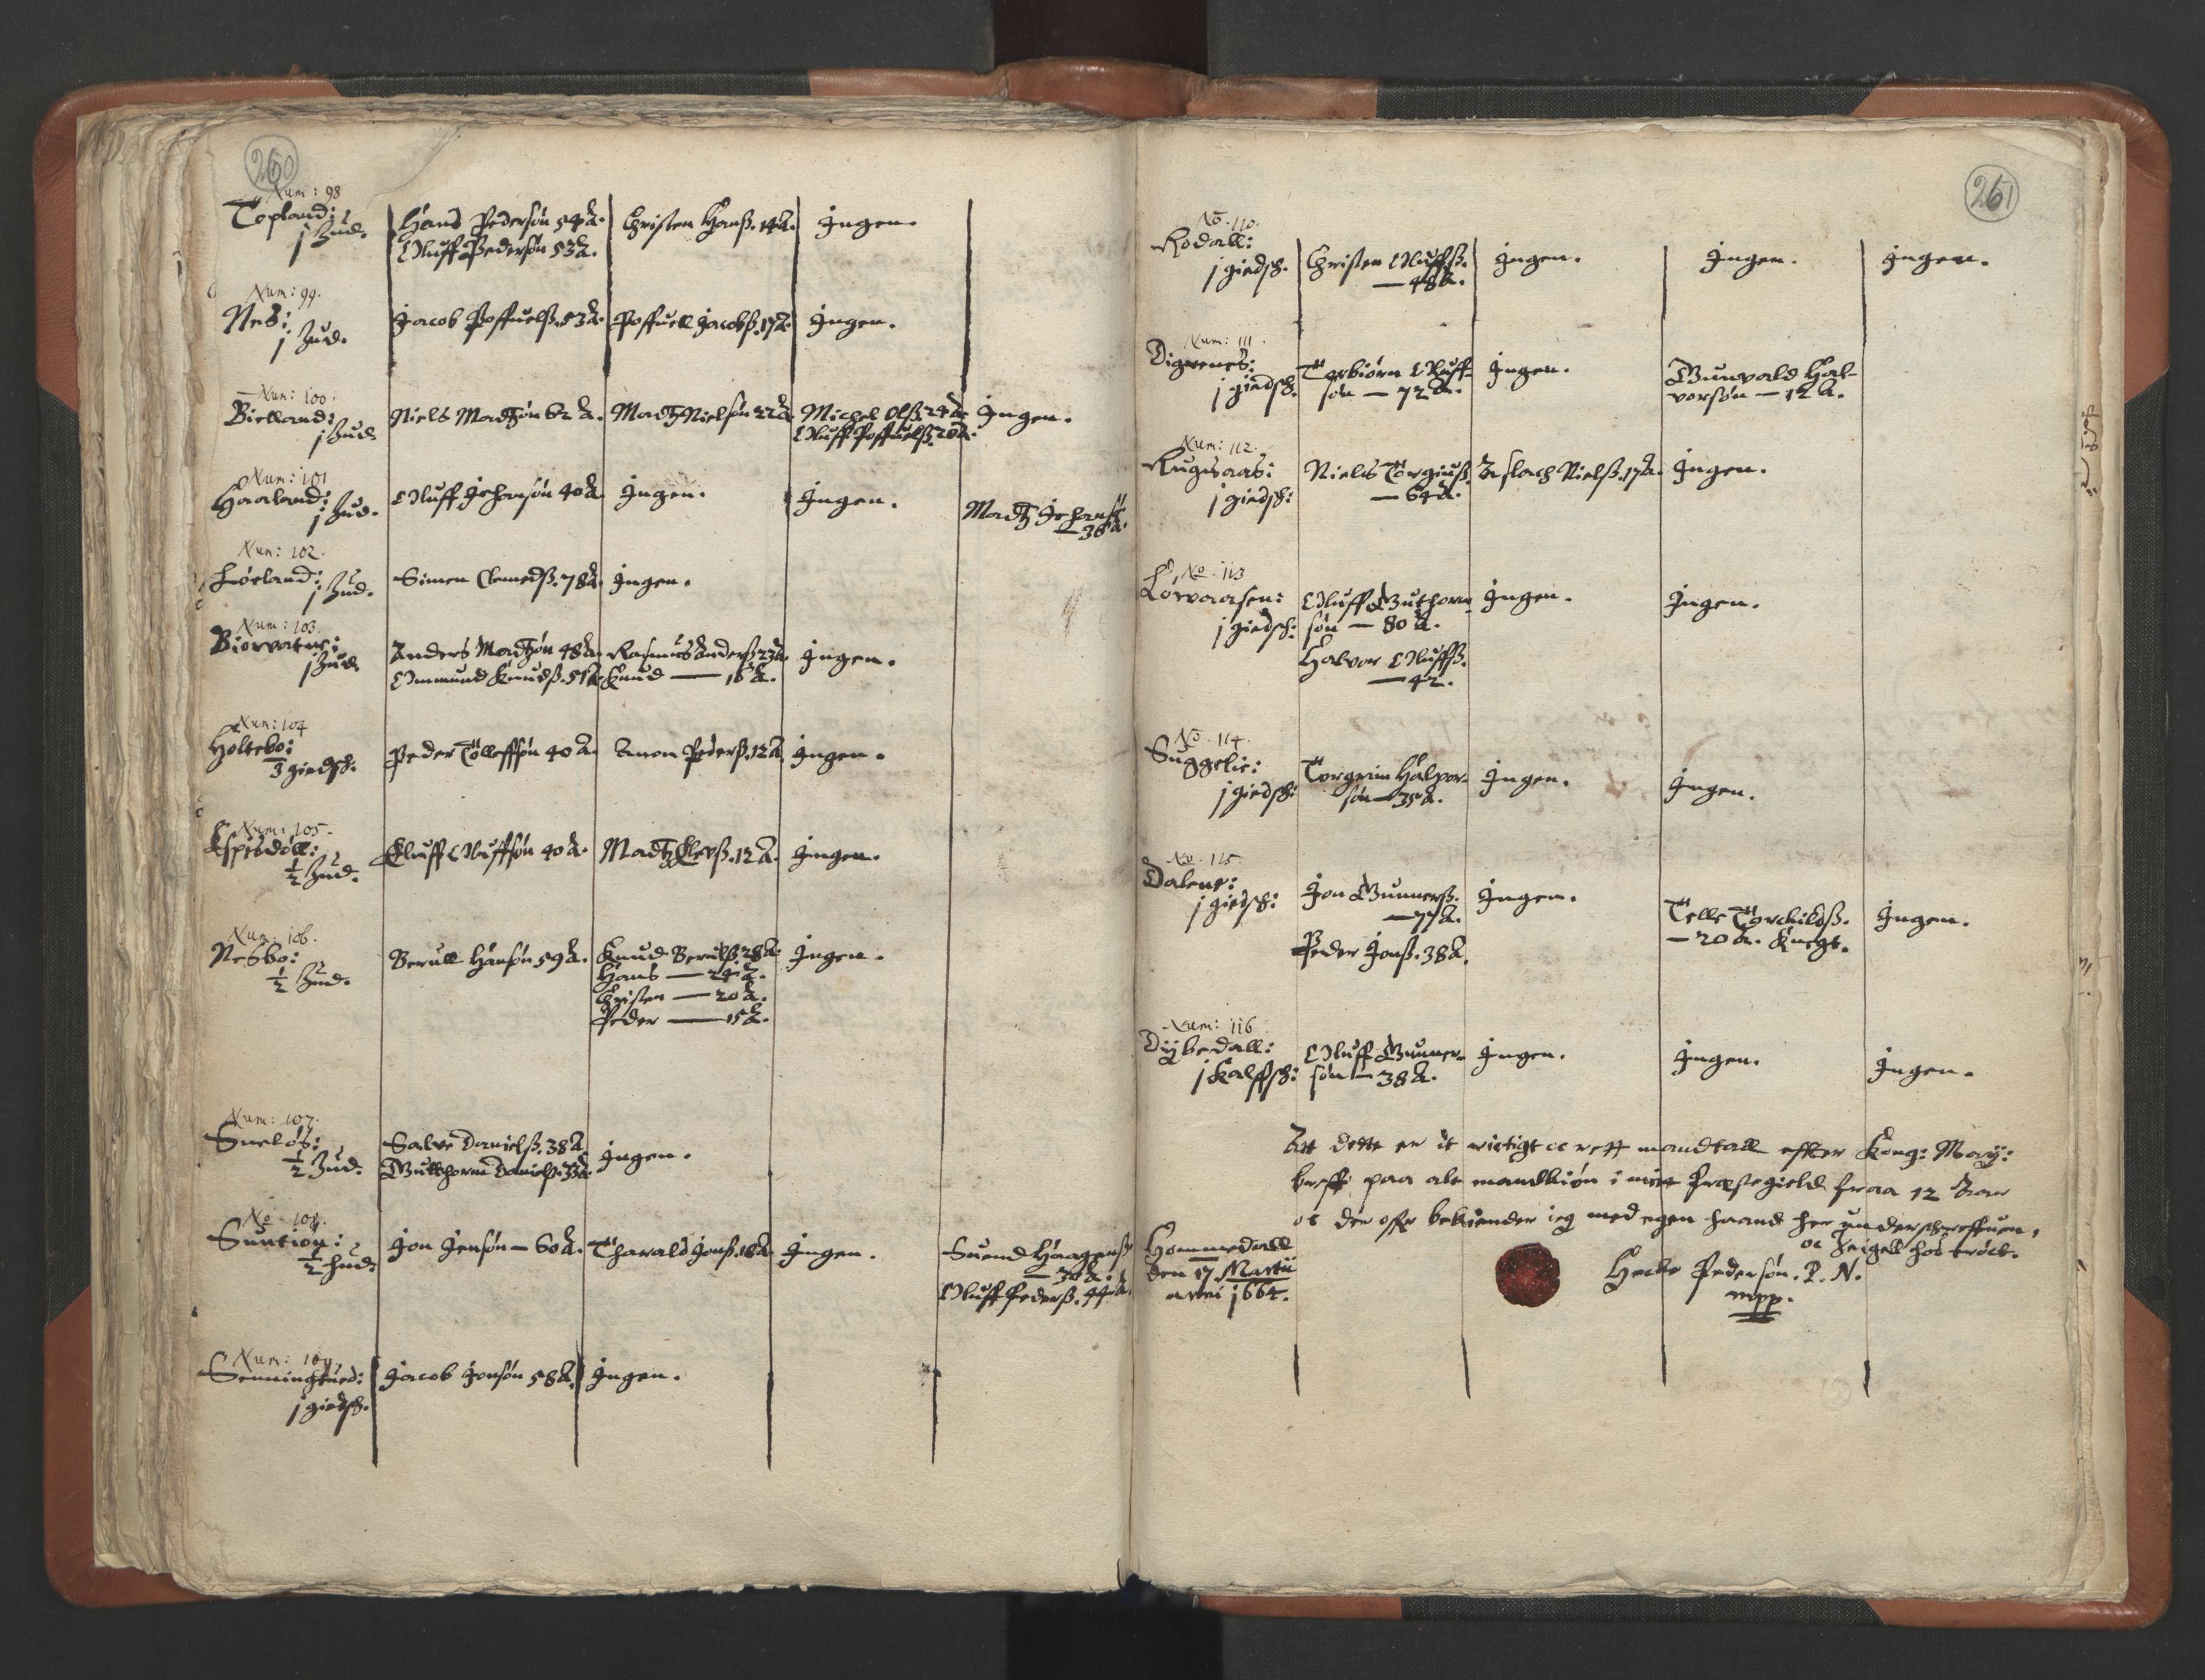 260
Num: 98
Topland:
j Hud.
Hans Pedersøn 54 A.
Oluff Pedersøn 53 A.
Christen Hanß. 14 A.
Ingen.
Num: 99.
Nes:
j Hud.
Jacob Poffuelß. 53 A.
Poffuell Jacobß. 17 A.
Ingen.
Num: 100.
Bielland:
j Hud.
Niels Madtzøn 62 A.
Madtz Nielsøn 22 A.
Michel Olß. 24 A.
Oluff Poffuelß. 20 A.
Ingen.
Num: 101
Haaland:
j Hud.
Oluff Jehansøn 40 A.
Ingen.
Ingen.
Madtz Jehanß
38 A.
Num: 102.
Løeland:
j Hud.
Simen Clemedß. 78 A.
Ingen.
Num: 103.
Biorvatne:
j Hud.
Anders Madtzøn 48 A.
Ommund Knudß. 51 A.
Rasmus Anderß. 23 A.
Knud — 16 A.
Ingen.
Num: 104
Holtebo:
3 giedsk.
Peder Tolleffsøn 40 A.
Amon Pederß. 12 A.
Ingen.
Num: 105.
Espesdall:
½ Hud.
Eluff Oluffsøn 40 A.
Madtz Elevß. 12 A.
Ingen.
Num: 106.
Nesbo:
½ Hud.
Berull Hansøn 59 A.
Knud Berulß. 28 A.
Hans — 24 A.
Christen — 20 A.
Peder — 15 A.
Ingen.
Num: 107.
Sueløs:
½ Hud.
Salve Danielß. 38 A.
Gutthorm Danielß. 33 A.
Ingen.
No. 108.
Suntion:
½ hud.
Jon Jensøn — 60 A.
Tharald Jonß. 18 A.
Ingen.
Suend Haagenß
— 30 A.
Oluff Pederß. 44 A.
Num: 109.
Senningsued:
j giedsk.
Jacob Jonsøn 58 A.
Ingen.
261
No. 110.
Rodall:
j giedsk.
Christen Oluffß.
— 48 A.
Ingen.
Ingen.
Ingen.
Num: 111.
Digrenes:
j giedsk.
Torbiørn Oluff-
søn — 72 A.
Ingen.
Gunvald Hal-
vorsøn — 12 A.
Num: 112.
Rugsaas:
j giedsk:
Niels Torgiuß.
— 64 A.
Aslach Nielß. 17 A.
Ingen.
No. 113
Løvaasen:
j giedsk:
Oluff Guthorm-
søn — 80 A.
Halvor Oluffß.
— 42.
Ingen.
Ingen.
No. 114.
Suggelie:
j giedsk:
Torgrim Halvor-
søn — 35 A.
Ingen.
Ingen.
No. 115.
Dalene:
j giedsk:
Jon Gunnerß.
— 77 A.
Peder Jonß. 38 A.
Ingen.
Telle Torchildß.
— 20 A. Knegt.
Ingen.
Num: 116
Dybedall:
j Kalffsk:
Oluff Gunner-
søn — 38 A.
Ingen.
Ingen.
Ingen.
Att dette er it rictigt oc rett mandtall effter Kong: May:
breff, paa ale mandkiøn i mit Præstegield fraa 12 Aar
oc der ofr bekiender ieg med egen haand her underschreffuen,
oc Zeigell hos tröct.
Hommedall
den 17 Martii
anni j664.
Pedersøn. P. N.
mpp.